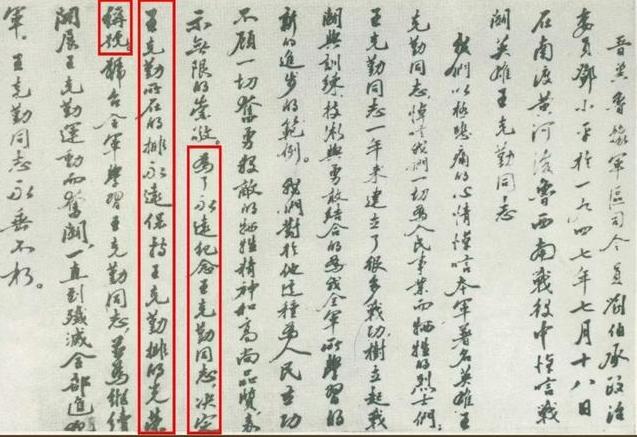 晋冀鲁豫軍區司令員劉伯承政治
委員鄧小平於一九四七年七月十八日
在南渡黄河後魯西南戰役中悼言戰
鬭英雄王克勤同志
我們以極悲痛的心情悼言本軍著名英雄王
克勤同志，悼言我們一切爲人民事業而牺牲的烈士們。
王克勤同志一年來建立了很多战功，樹立起戰
鬭與訓練、技術與勇敢結合的爲我全軍所學習的
新的進步的範例。我們對於他这種爲人民立功
不顧一切奮勇殺敵的牺牲精神和高尚品質表
示無限的崇敬。爲了永遠纪念王克勤同志，决定
王克勤所在的排永遠保持王克勤排的光荣
稱號。號召全軍學習王克勤同志，並爲继續
開展王克勤運動而奮鬭，一直到殲滅全部進犯
軍。王克勤同志永垂不朽。